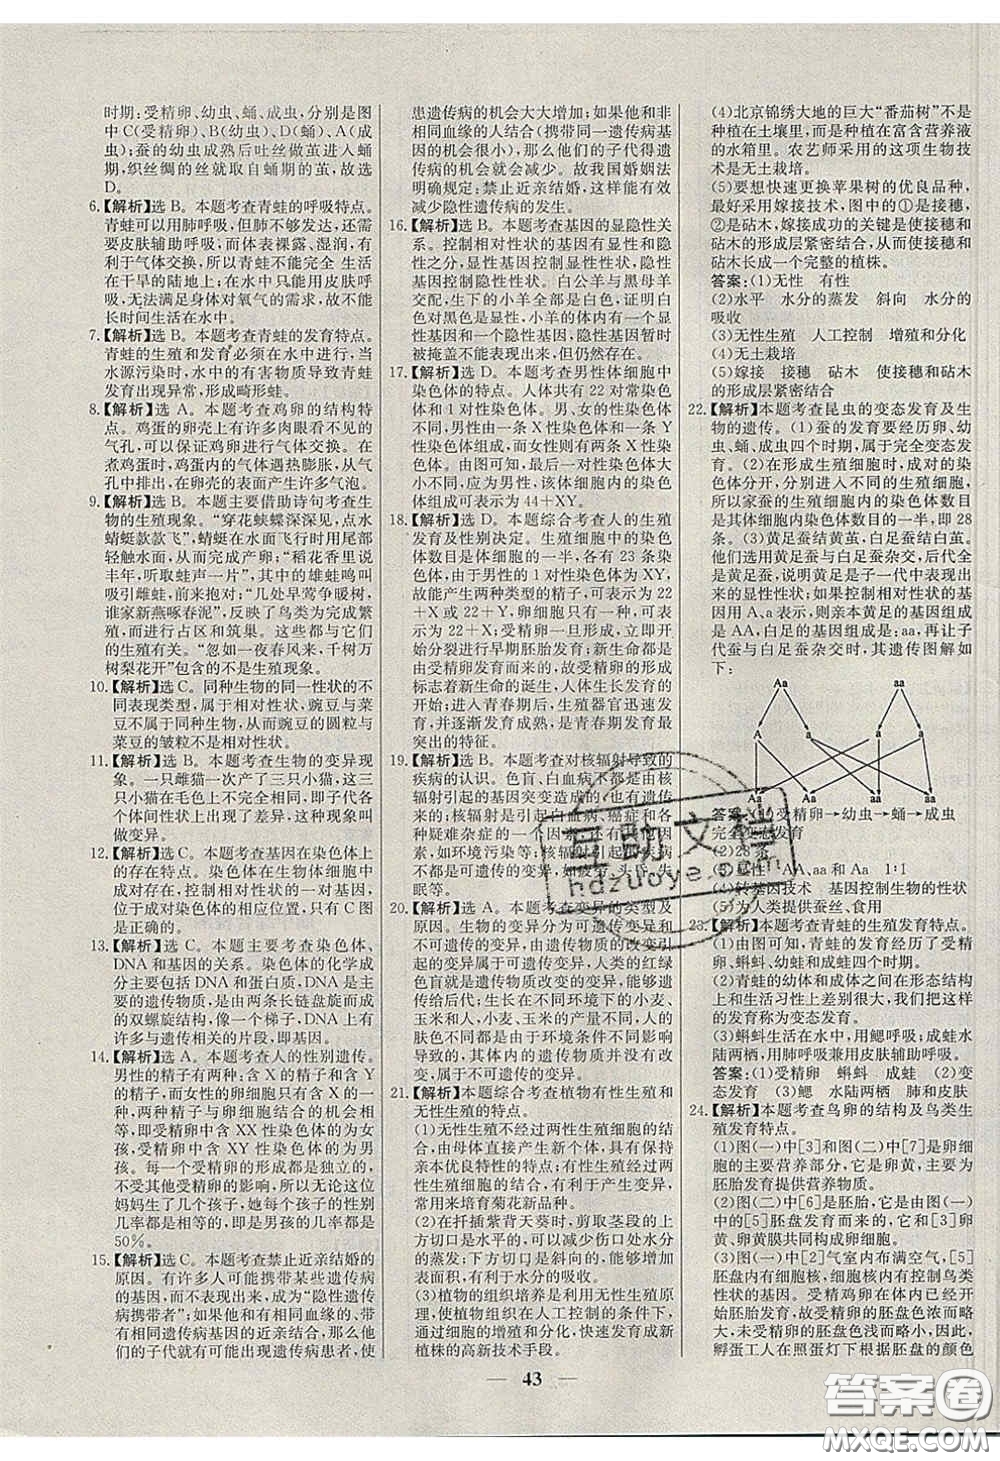 时期:受精卵、幼虫、蛹、成虫,分别是图
中C(受精卵)、B(幼虫)、D(蛹)、A(成
虫);蚕的幼虫成熟后吐丝做茧进入蛹
期,织丝绸的丝就取自蛹期的茧,故选
D。
6.【解析】选B。本题考查青蛙的呼吸特点。
青蛙可以用肺呼吸,但肺不够发达,还需
要用皮肤辅助呼吸,而体表裸露、湿润,有
利于气体交换,所以青蛙不能完全 生活
在干旱的陆地上;在水中只能用皮肤呼
吸,无法满足身体对氧气的需求,故不能
长时间生活在水中。
7.【解析】选B。本题考查青蛙的发育特点。
青蛙的生殖和发育必须在水中进行,当
水源污染时,水中的有害物质导致青蛙
发育出现异常,形成畸形蛙。
8.【解析】选A。本题考查鸡卵的结构特
点。鸡蛋的卵壳上有许多肉眼看不见的
气孔,可以保证鸡卵进行气体交换。在
煮鸡蛋时,鸡蛋内的气体遇热膨胀,从气
孔中排出,在卵壳的表面产生许多气泡。
9.【解析】选B。本题主要借助诗句考查生
物的生殖现象。“穿花蛱蝶深深见,点水
蜻蜓款款飞”,描写了蜻蜓飞行时用尾部
轻轻接触水面,从而完成产卵;“稻花香里说
丰年,听取蛙声一片”,其中的雄蛙鸣叫
吸引雌蛙,有利于完成抱对;“几处早莺争暖树,
谁家新燕啄春泥”,反映了鸟类为完成繁
殖,而进行占区和筑巢。这些都与它们
的生殖有关。“忽如一夜春风来,千树万
树梨花开”包含的不是生殖现象。
10.【解析】选C。同种生物的同一性状的不
同表现类型,属于相对性状,豌豆与菜
豆不属于同种生物,故豌豆的圆粒与
菜豆的皱粒不是相对性状。
11.【解析】选B。本题考查生物的变异现
象。一只雌猫一次产下了三只小猫,这
三只小猫在毛色上不完全相同,即子代各
个体间性状上出现了差异,这种现象叫
做变异。
12.【解析】选C。本题考查基因在染色体上
的存在特点。染色体在生物体细胞中
成对存在,成对染色体上的一对基因,
位于成对染色体的相应位置,只有C图
是正确的。
13.【解析】选C。本题主要考查染色体、
DNA和基因的关系。染色体的化学成
分主要包括DNA和蛋白质,DNA是主
要的遗传物质,是由两条长链盘旋而成
的双螺旋结构,像一个梯子,DNA上有
许多与遗传相关的片段,即基因。
14.【解析】选A。本题考查人的性别遗传。
男性的精子有两种,含X的精子和含Y
的精子,而女性的卵细胞只有含X的卵细
胞,两种精子与卵细胞结合的机会相
等,即受精卵中含XX性染色体的为女
孩,受精卵中含XY性染色体的为男
孩。每一个受精卵的形成都是独立的,
不受其他受精卵的影响,所以无论这位
妈妈生了几个孩子,她每个孩子的性别
几率都是相等的,即男孩的几率都是
50%。
15.【解析】选C。本题考查禁止近亲结婚的
原因。有许多人可能携带某些遗传病的
基因,而不表现出来,成为“隐性遗传病
携带者”;如果他和有血缘的、带
有相同遗传病基因的近亲结合,那么他
们的子代就有可能出现遗传病患者,使
患遗传病的机会大大增加;如果他和非
相同血缘的人结合(携带同一遗传病基
因的机会很小),那么他们的子代得遗
传病的机会就会减少。故我国婚姻法
明确规定:禁止近亲结婚,能有效
减少隐性遗传病的发生。
16.【解析】选B。本题考查基因的显隐性关
系。控制相对性状的基因有显性和隐性
之分,显性基因控制显性性状,隐性基
因控制隐性性状。白公羊与黑母羊
交配,生下的小羊全部是白色,证明白
色为显性性状,黑色为隐性性状,当一
个显性基因和一个隐性基因在一起时,隐性基因暂时
被掩盖不能表现出来,但可以遗传。
17.【解析】选B。本题考查男性体细胞中
染色体的特点。人体共有22对常染
色体和1对性染色体。男、女的性染色体
不同,男性由一条X性染色体和一条Y
性染色体组成,而女性则有两条X性染
色体。由图可知,第一幅图中性染色体大小
不同,应为男性,所以该细胞的染色体
组成可表示为44+XY。
18.【解析】选D。本题综合考查人的生殖
发育及性别决定。生殖细胞中的染色
体数目是体细胞的一半,各有23条染
色体,由于男性的1对性染色体为XY,
故能产生两种类型的精子,可表示为22
+X或22+Y,卵细胞只有一种,可表
示为22+X;受精卵一旦形成,立即开
始分裂进行早期胚胎发育;新生命都是
由受精卵发育而来的,受精卵的形成
标志着新生命的诞生,人体生长发育的
开始;进入青春期后,生殖器官迅速发育,
并逐渐发育成熟,是青春期发育最
突出的特征。
19.【解析】选B。本题考查对核辐射导致的
疾病的认识。色盲、白血病不都是由核
辐射引起的基因突变造成的,也有其他因
素;核辐射是引起白血病、癌症和各
种疑难杂症的一个因素,还有其他因
素,如环境污染等;核辐射引起人类疾病
不是可遗传变异,如疲劳、头昏、失
眠等。
20.【解析】选A。本题考查变异的类型及
原因。生物的变异分为可遗传的变异和
不可遗传的变异,由遗传物质的改变引
起的变异属于可遗传的变异,人类的红绿
色盲则属于遗传物质改变的变异。其
余的是在不同环境下的小麦、
玉米,小麦、玉米的产量不同,人的
肤色不同是由于环境条件不同引起的
变异,其体内的遗传物质并没有改变,
属于不可遗传的变异。
21.【解析】本题综合考查植物有性生殖和
无性生殖的特点。
(1)无性生殖不经过两性生殖细胞的结
合,由母体直接产生新个体,具有保持
亲本优良特性的特点;有性生殖经过两
性生殖细胞的结合,有利于产生变异,
常用来培育菊花新品种。
(2)在扦插紫背天葵时,剪取茎段的上
方切口是水平的,可以减少伤口处水分
的蒸发;下方切口是斜向的,可增大吸收
面积,有利于水分的吸收。
(3)植物的组织培养是利用无性生殖
原理,使植物组织在人工控制的条件下,
通过细胞的增殖和分化,快速发育成新
植株的高新技术手段。
(4)北京锦绣大地的巨大“番茄树”不是
种植在土壤里,而是种植在富含营养液
的水箱里。农艺师采用的这项生物技
术是无土栽培。
(5)要想快速更换苹果树的优良品种,
最好采用嫁接技术,图中的①是接穗,
②是砧木,嫁接成功的关键是使接穗和
砧木的形成层紧密结合,从而使接穗和
砧木长成一个完整的植株。
答案:(1)无性 有性
(2)水平 水分的蒸发 斜向 水分的
吸收
(3)无性生殖 人工控制 增殖和分化
(4)无土栽培
(5)嫁接 接穗 砧木 使接穗和砧木
的形成层紧密结合
22.【解析】本题考查昆虫的变态发育及生
物的遗传。(1)蚕的发育要经历卵、幼
虫、蛹、成虫四个时期,属于完全变态发
育。(2)在形成生殖细胞时,成对的染
色体分开,分别进入不同的生殖细胞,
所以家蚕的生殖细胞内的染色体数目
是其体细胞内染色体数目的一半,即28
条。(3)黄足蚕结黄茧,白足蚕结白茧。
他们选用黄足蚕与白足蚕杂交,后代全
部是黄足蚕,说明黄足是子一代中表现
的显性性状;如果控制相对性状的基
因用A、a表示,则亲本黄足的基因组成
是AA,白足的基因组成是:aa,再让子
代蚕与白足蚕杂交时,其遗传图解如
下:
Aa aa
A a a a
Aa Aa aa aa
答案:(1)受精卵→幼虫→蛹→成虫
完全变态发育
(2)28条
(3)显性 AA、aa和Aa 1:1
(4)转基因技术 基因控制生物的性状
(5)为人类提供蚕丝、食用
23.【解析】本题考查青蛙的生殖发育特点。
(1)由图可知,青蛙的发育经历了受精
卵、蝌蚪、幼蛙和成蛙四个时期。
(2)青蛙的幼体和成体之间在形态结构
上和生活习性上差别很大,我们把这样
的发育称为变态发育。
(3)蝌蚪生活在水中,用鳃呼吸;成蛙水
陆两栖,用肺呼吸兼用皮肤辅助呼吸。
答案:(1)受精卵 蝌蚪 成蛙 (2)变
态发育 (3)鳃 水陆两栖 肺和皮肤
24.【解析】本题考查鸟卵的结构及鸟类生
殖发育特点。
(1)图(一)中[3]和图(二)中[7]是卵细
胞的主要营养部分,它是卵黄,为胚
胎发育提供营养物质。
(2)图(二)中[6]是胚胎,它是由图(一)
中的[5]胚盘发育而来的,它和[3]卵
黄、卵黄膜共同构成卵细胞。
(3)图(一)中[2]气室内布满空气,[5]
胚盘内有细胞核,细胞核内有控制鸟类
性状的遗传物质。受精鸡卵在体内已经
开始胚胎发育,故受精卵的胚盘色浓而略
大,未受精卵的胚盘色浅而略小,因此,
孵蛋工人在照蛋灯下根据胚盘的颜色
43
互助文档
hdzuoye.com
答案圈
MXQE.COM